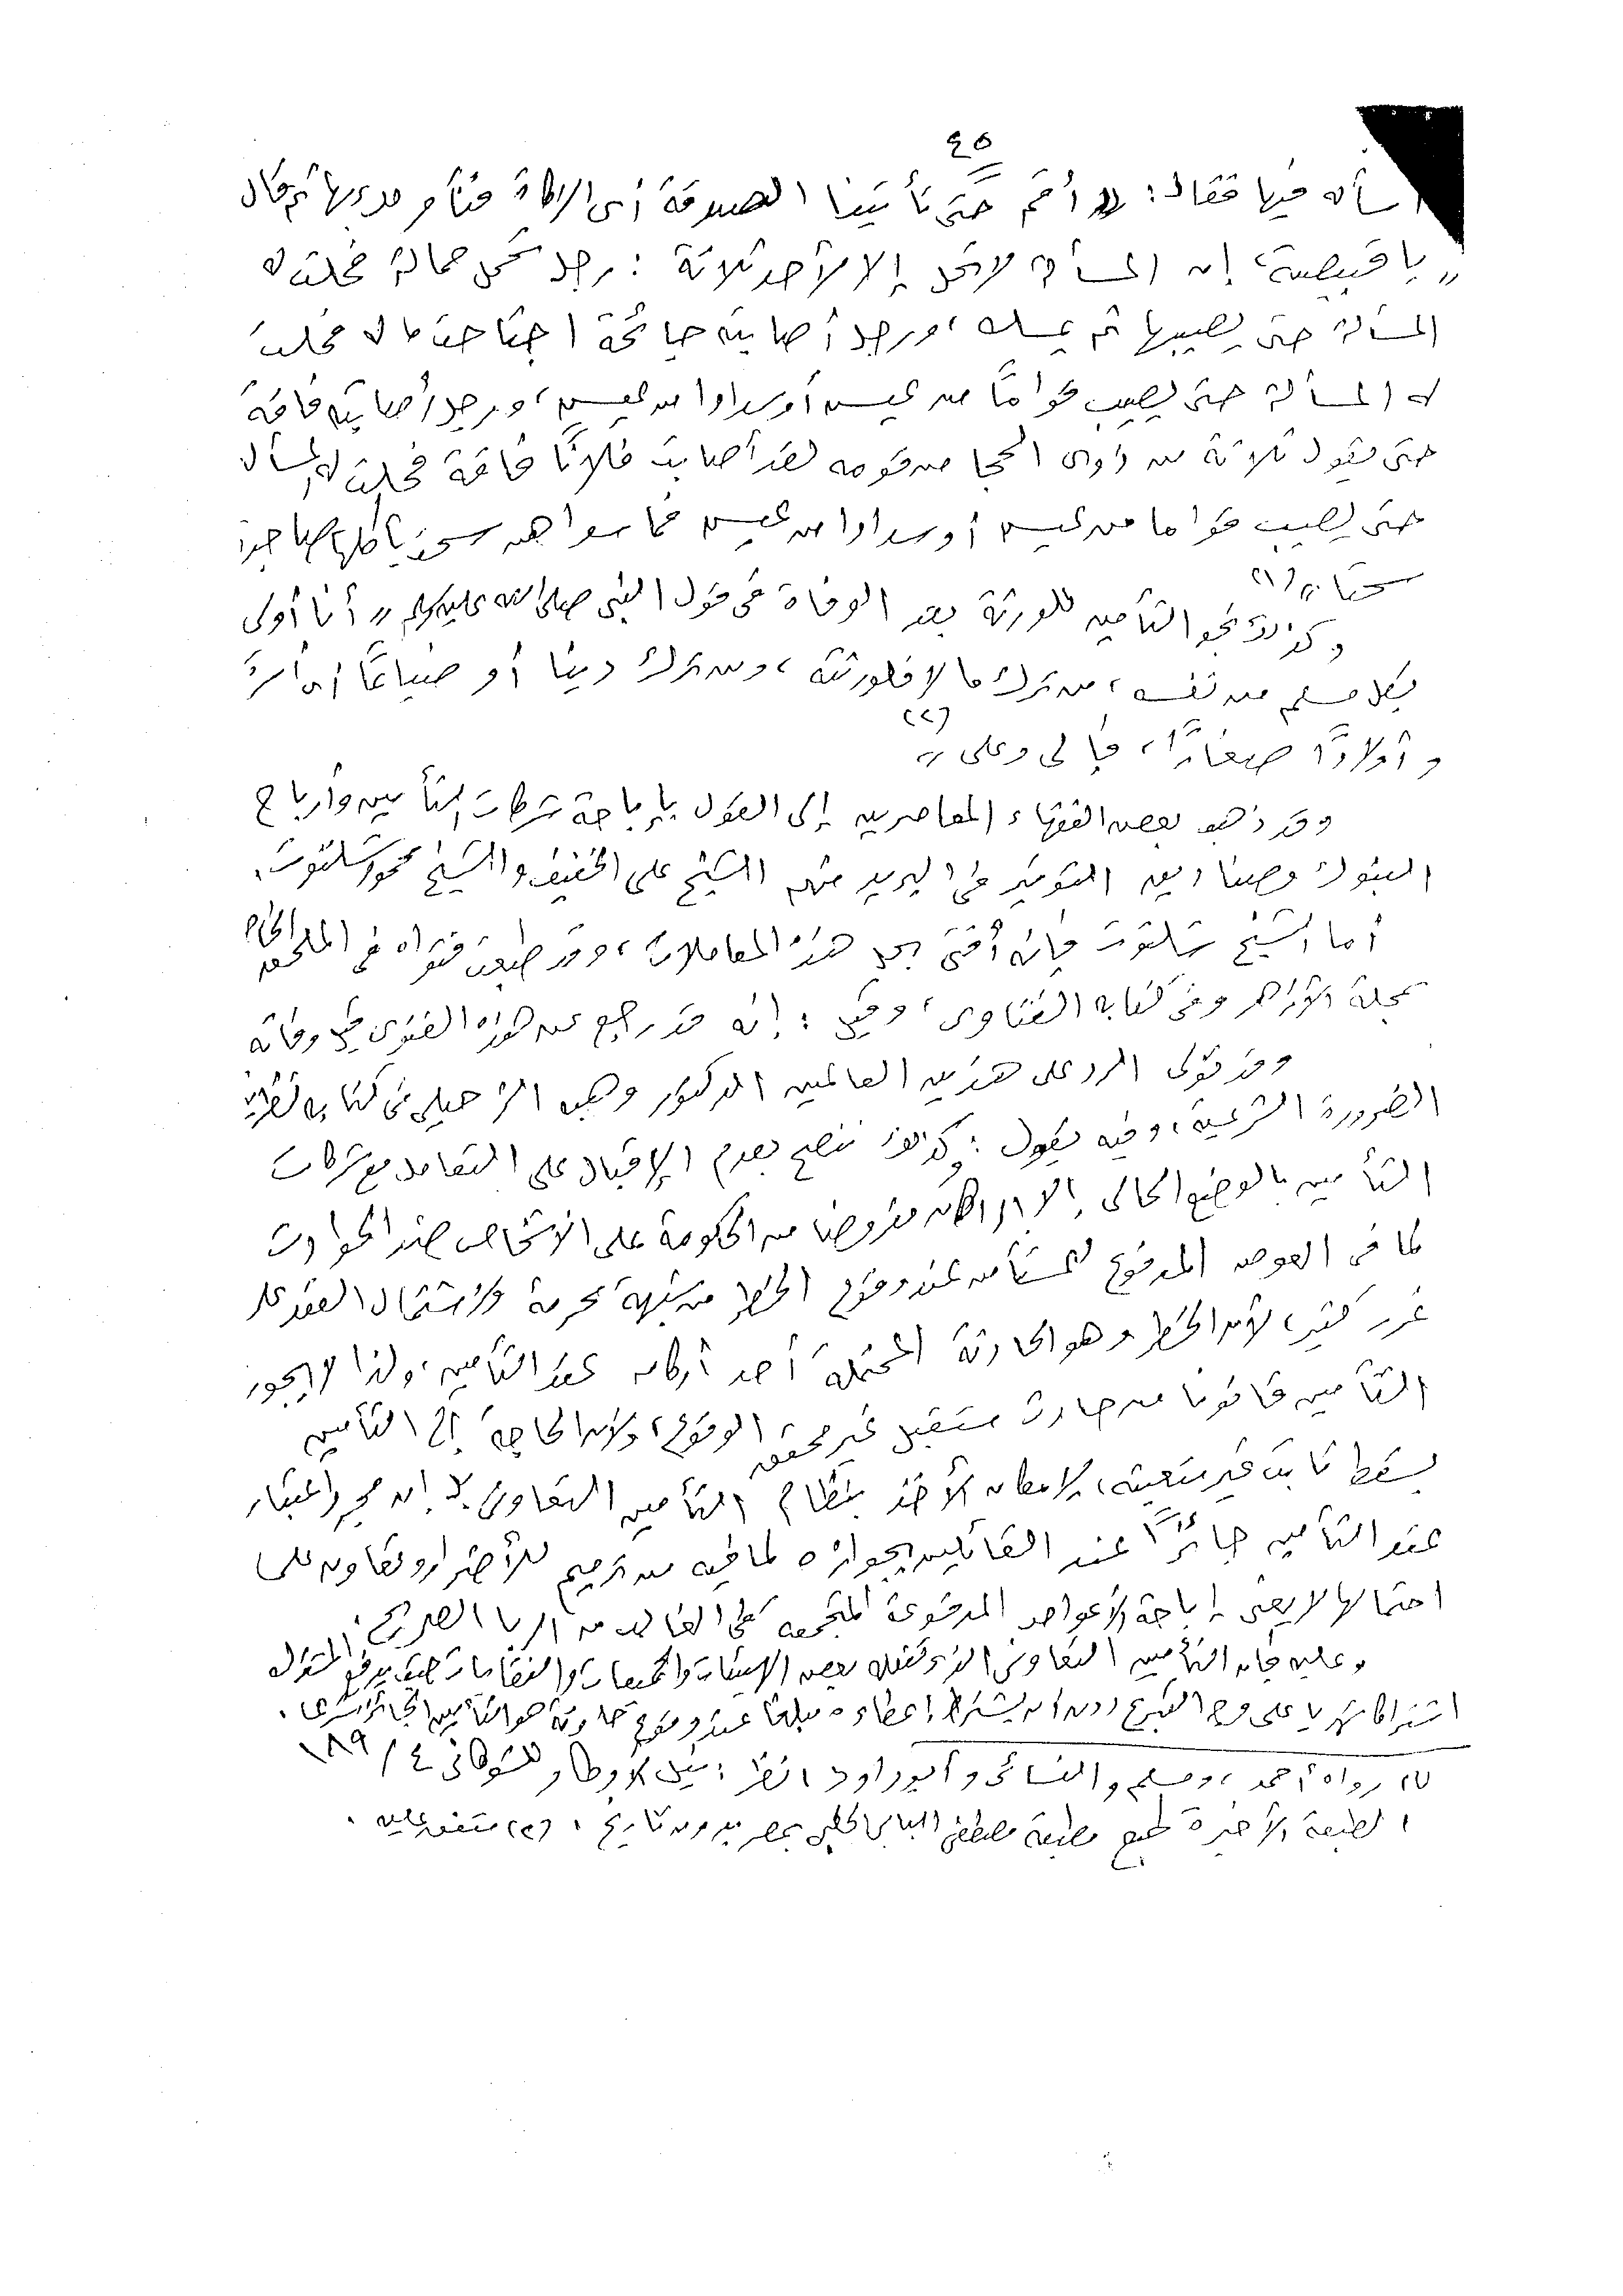 ٤٥
أسأله فيها فقال: « أقم حتى تأتينا الصدقة أى الزكاة فنأمر لك بها ثم قال
« يا قبيصة، إن المسألة لا تحل إلا لأحد ثلاثة : رجل تحمل حمالة فحلت له
المسألة حتى يصيبها ثم يمسك، ورجل أصابته جائحة اجتاحت ماله فحلت
له المسألة حتى يصيب قواماً من عيش أو سدادا من عيش، ورجل أصابته فاقة
حتى يقول ثلاثة من ذوى الحجا من قومه لقد أصابت فلاناً فاقة فحلت له المسألة
حتى يصيب قواما من عيش أو سدادا من عيش فما سواهن سحت يأكلها صاحبها
سحتا » (١)
وكذلك نحو التأمين للورثة بعد الوفاة فى قول النبى صلى الله عليه وسلم « أنا أولى
بكل مسلم من نفسه، من ترك مالا فلورثته، ومن ترك دينا أو ضياعاً أى أسرة
وأولاداً صغاراً، فإلى وعلى » (٢)
وقد ذهب بعض الفقهاء المعاصرين إلى القول بإباحة شركات التأمين وأرباح
البنوك وصناديق التوفير فى البريد منهم الشيخ على الخفيف والشيخ محمود شلتوت.
أما الشيخ شلتوت فإنه أفتى بحل هذه المعاملات، وقد طبعت فتواه فى الملحق الخاص
بمجلة الأزهر وفى كتابه الفتاوى، وقيل : إنه قد رجع عن هذه الفتوى قبل وفاته
وقد تولى الرد على هذين العالمين الدكتور وهبه الزحيلى فى كتابه نظرية
الضرورة الشرعية، وفيه يقول : وكذلك ننصح بعدم الإقبال على التعامل مع شركات
التأمين بالوضع الحالى إلا إذا كان مفروضا من الحكومة على الأشخاص ضد الحوادث
لما فى العوض المدفوع للمستأمن عند وقوع الخطر من شبهة محرمة ولاشتمال العقد على
غرر كثير، لأن الخطر وهو الحادثة المحتملة أحد أركان عقد التأمين، ولذا لا يجوز
التأمين قانونا من حادث مستقبل غير محقق الوقوع، ولأن الحاجة إلى التأمين
بقسط ثابت غير متعينة، لإمكان الأخذ بنظام التأمين التعاونى بل إن مجرد اعتبار
عقد التأمين جائزاً عند القائلين بجوازه لما فيه من ترميم للأضرار وتعاون على
احتمالها لا يعنى إباحة الأعواض المدفوعة المتجمعة فى الغالب من الربا الصريح.
وعليه فإن التأمين التعاونى الذى تفعله بعض الهيئات والجمعيات والنقابات حيث يدفع المشترك
اشتراكا شهريا على وجه التبرع دون أن يشترط إعطاءه مبلغا عند وقوع حادثة هو التأمين الجائز شرعا.
(١) رواه أحمد، ومسلم والنسائى وأبو داود، انظر: نيل الأوطار للشوكانى ٤ / ١٨٩
الطبعة الأخيرة طبع مطبعة مصطفى البابى الحلبى بمصر بدون تاريخ. (٢) متفق عليه.